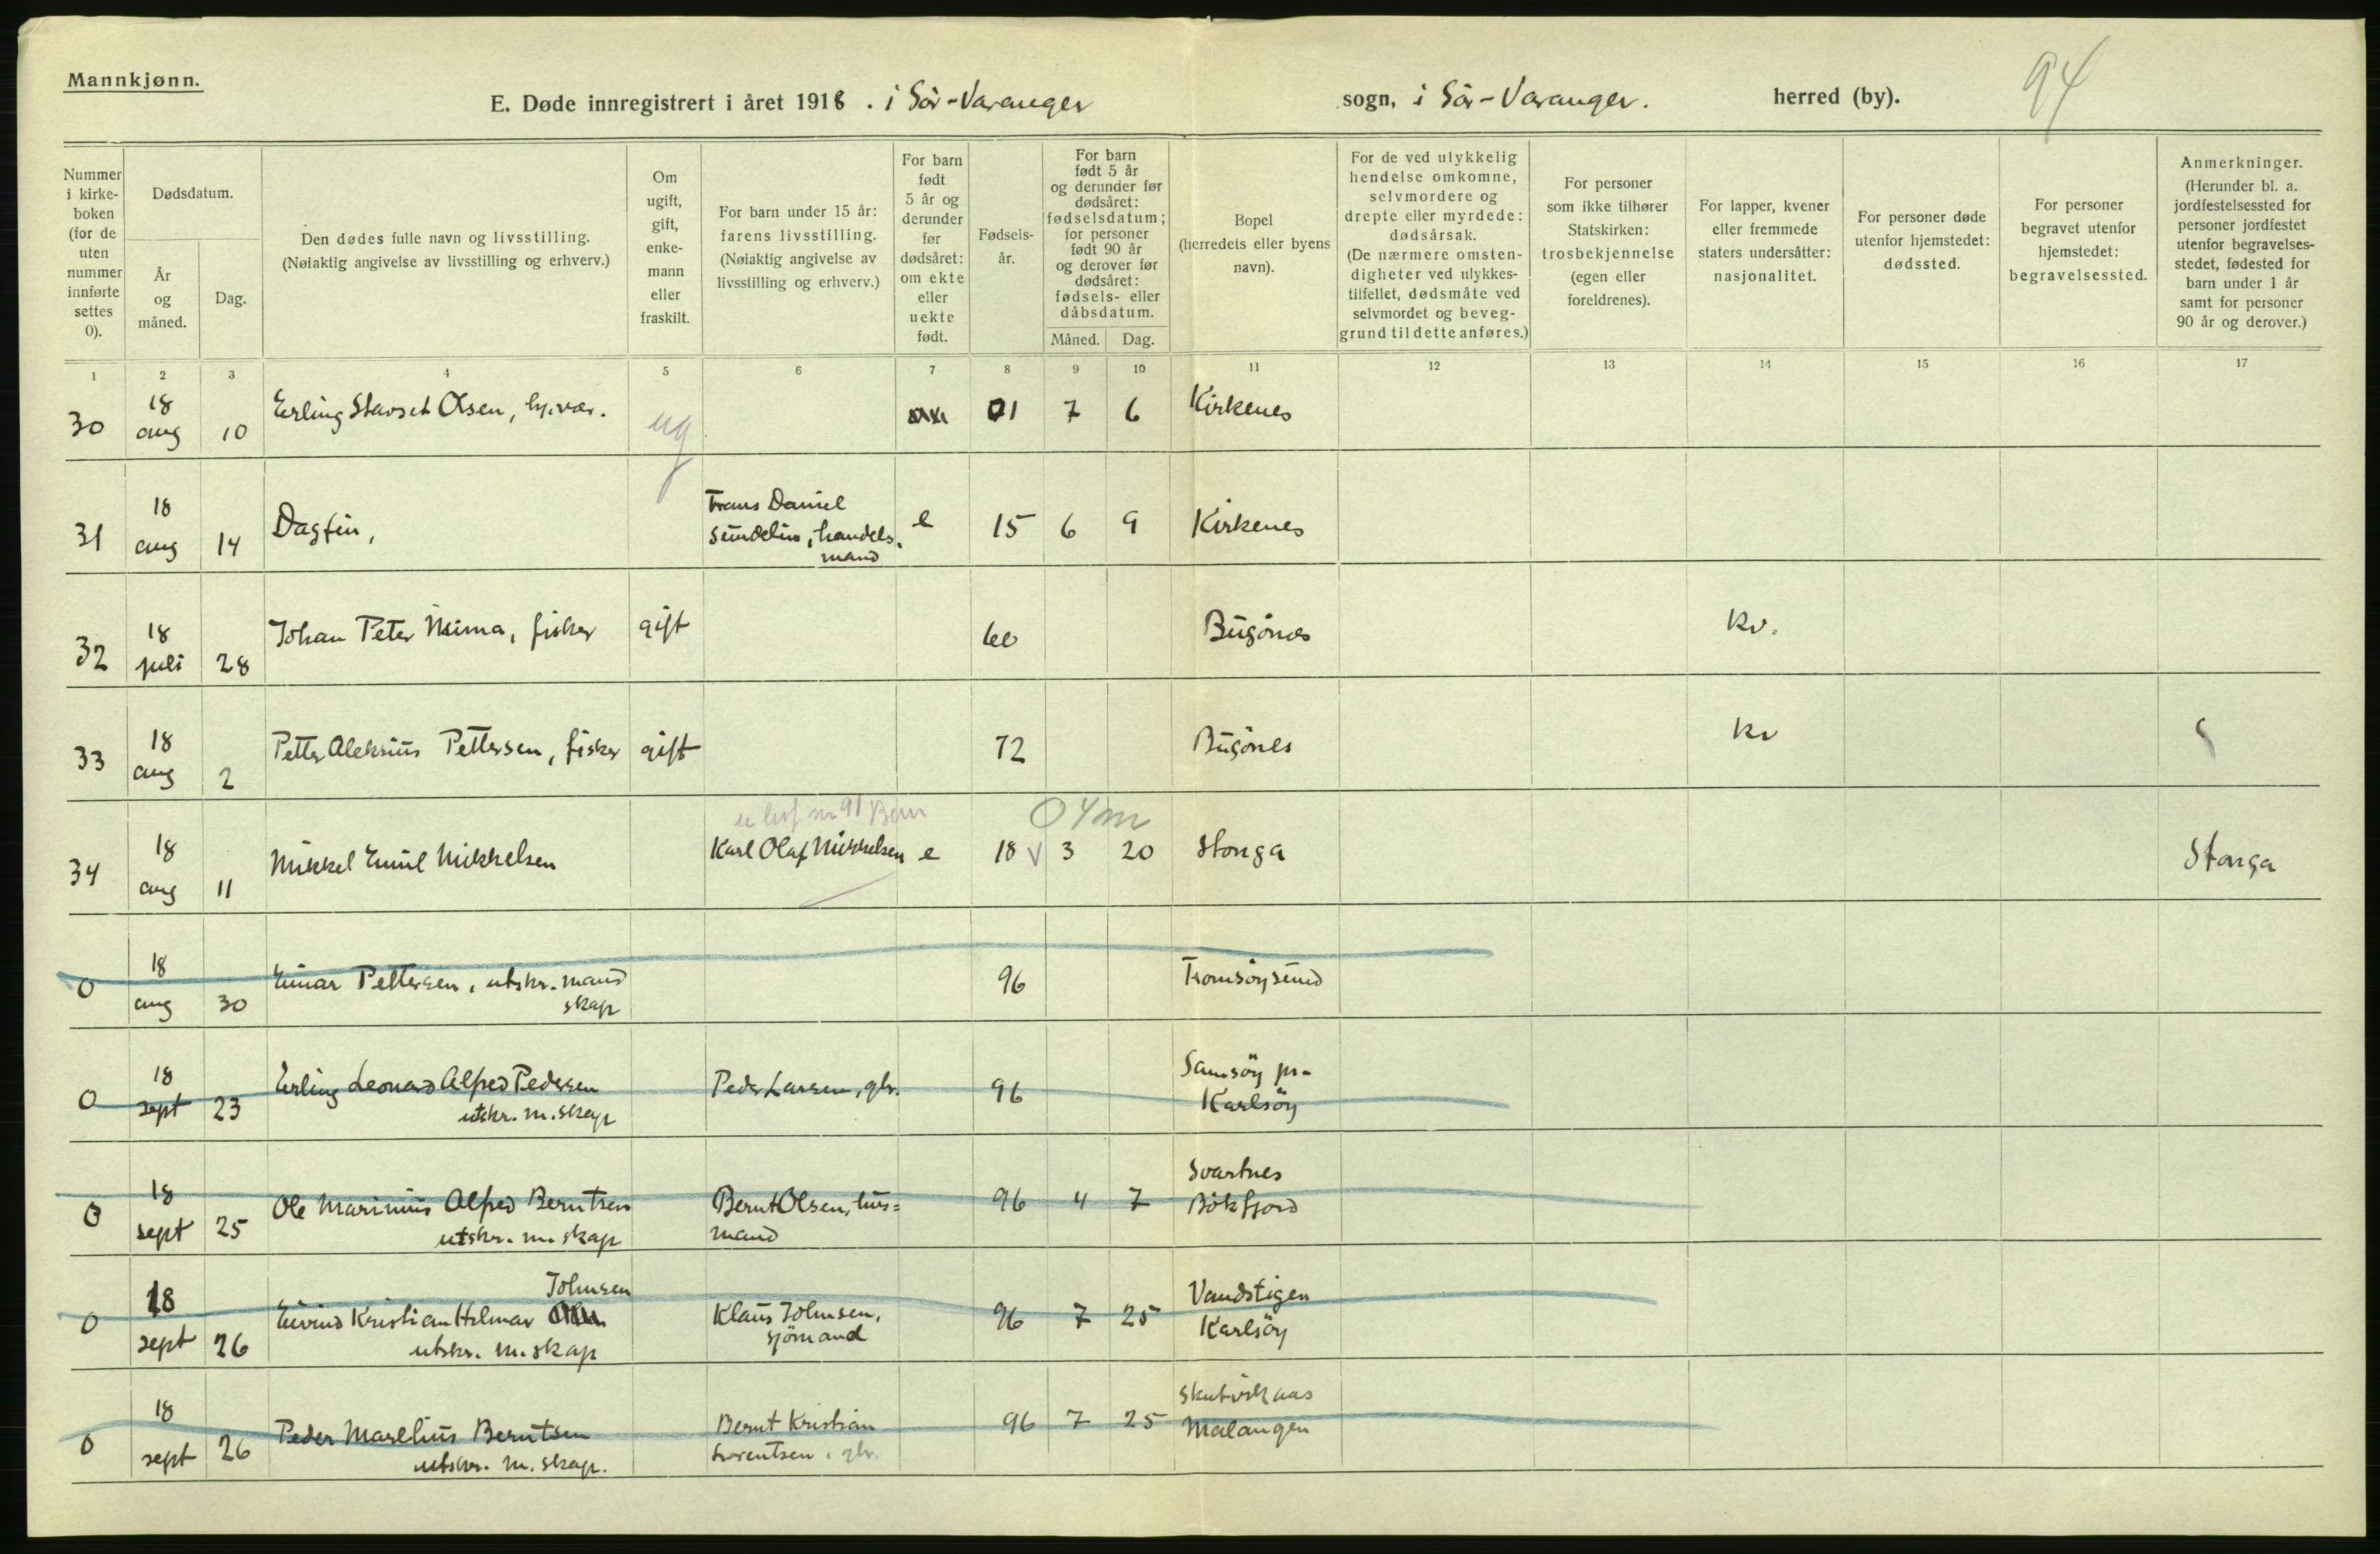 Mannkjønn.
94
E. Døde innregistrert i året 1918 . i Sör-Varanger sogn, i Sör-Varanger. herred (by).
Nummer i kirke- boken (for de uten nummer innførte settes 0).
Dødsdatum.
År og måned.
Dag.
Den dødes fulle navn og livsstilling.
(Nøiaktig angivelse av livsstilling og erhverv.)
Om ugift, gift, enke- mann eller fraskilt.
For barn under 15 år: farens livsstilling. (Nøiaktig angivelse av livsstilling og erhverv.)
For barn født 5 år og derunder før dødsåret: om ekte eller uekte født.
Fødsels- år.
For barn født 5 år og derunder før dødsåret: fødselsdatum; for personer født 90 år og derover før dødsåret: fødsels- eller dåbsdatum.
Måned. Dag.
Bopel (herredets eller byens navn).
For de ved ulykkelig hendelse omkomne, selvmordere og drepte eller myrdede: dødsårsak. (De nærmere omsten- digheter ved ulykkes- tilfellet, dødsmåte ved selvmordet og beveg- grund til dette anføres.)
For personer som ikke tilhører Statskirken: trosbekjennelse (egen eller foreldrenes).
For lapper, kvener eller fremmede staters undersåtter: nasjonalitet.
For personer døde utenfor hjemstedet: dødssted.
For personer begravet utenfor hjemstedet: begravelsessted.
Anmerkninger. (Herunder bl. a. jordfestelsessted for personer jordfestet utenfor begravelses- stedet, fødested for barn under 1 år samt for personer 90 år og derover.)
1 2 3 4 5 6 7 8 9 10 11 12 13 14 15 16 17
30 18 aug 10 Erling Stavset Olsen, ug 01 7 6 Kirkenes
31 18 aug 14 Dagfin, Frans Daniel Sundelin, handels- mand e 15 6 9 Kirkenes
32 18 juli 28 Johan Peter Niima, fisker gift 60 Bugönes kv.
33 18 aug 2 Petter Aleksius Pettersen, fisker gift 72 Bugönes kv
04m
34 18 aug 11 Mikkel Emil Mikkelsen Karl Olaf Mikkelsen e 18 3 20 Stonga Stonga
0 18 aug 30 Einar Pettersen, utskr. mand skap 96 Tromsöysund
0 18 sept 23 Erling Leonard Alfred Pedersen utskr. m.skap Peder Larsen, gbr. 96 Samsöy pr. Karlsöy
0 18 sept 25 Ole Marinius Alfred Berntsen utskr. m. skap Bernt Olsen, hus= mand 96 4 7 Svartnes Bökfjord
0 18 sept 26 Eivind Kristian Hilmar Johnsen utskr. m. skap Klaus Johnsen, sjömand 96 7 25 Vandstigen Karlsöy
0 18 sept 26 Peder Marelius Berntsen utskr. m. skap. Bernt Kristian Lorentsen, gbr. 96 7 25 Malangen